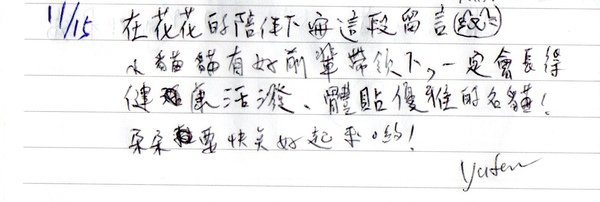 11/15 在花花的陪伴下寫這段留言
小貓貓有好前輩帶領下,一定會長得
健康活潑、體貼優雅的名貓!
朵朵要快矣好起來喲!
Yufen